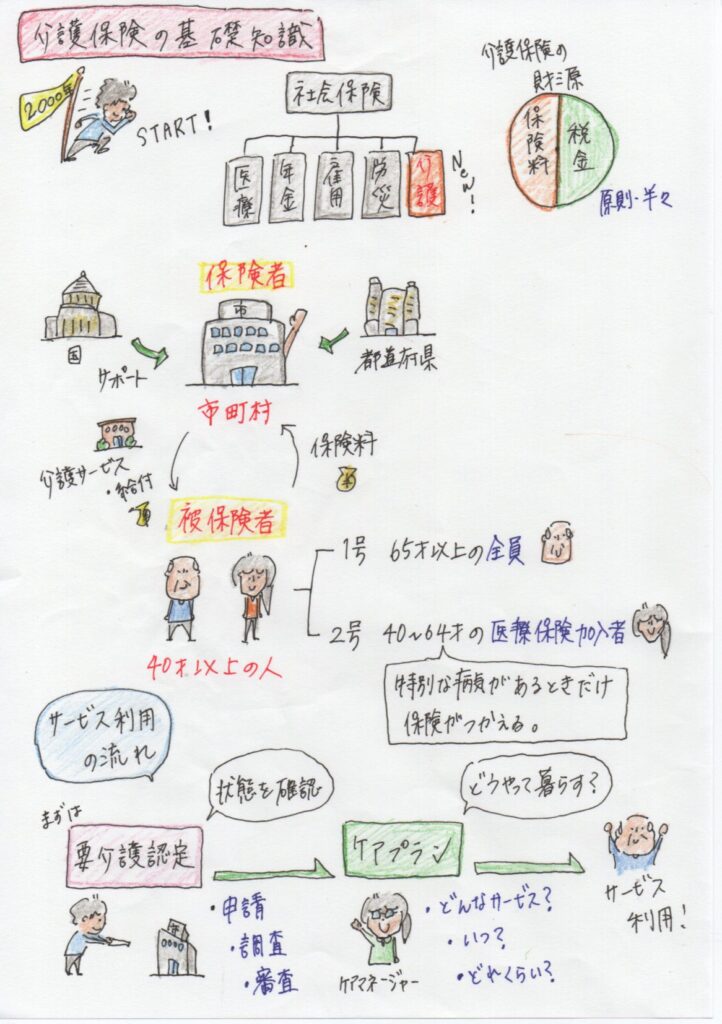 介護保険の基礎知識
2000年
START!
社会保険
医療
年金
雇用
労災
介護
New!
介護保険の
財源
保険料
税金
原則・半々
保険者
市
国
サポート
都道府県
市町村
介護サービス
・給付
保険料
¥
被保険者
40才以上の人
1号 65才以上の全員
2号 40~64才の医療保険加入者
特別な病気があるときだけ
保険がつかえる。
サービス利用
の流れ
まずは
要介護認定
状態を確認
・申請
・調査
・審査
ケアプラン
どうやって暮らす?
ケアマネージャー
・どんなサービス?
・いつ?
・どれくらい?
サービス
利用!